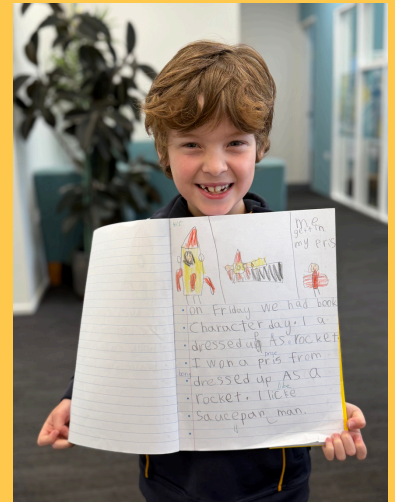 me
getin
my pris
on Friday we had book
Character day. I a
dressed up As. rocket
I won a pris from
dressed up AS a
rocket. I licte
Saucepan man.